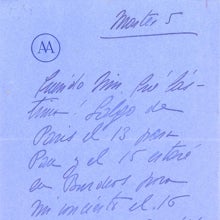 Martes 5
AA
Querido Min. Qué lás-
tima! Salgo de
Paris el 13 para
Pau y el 15 estaré
en Burdeos para
mi concierto el 15